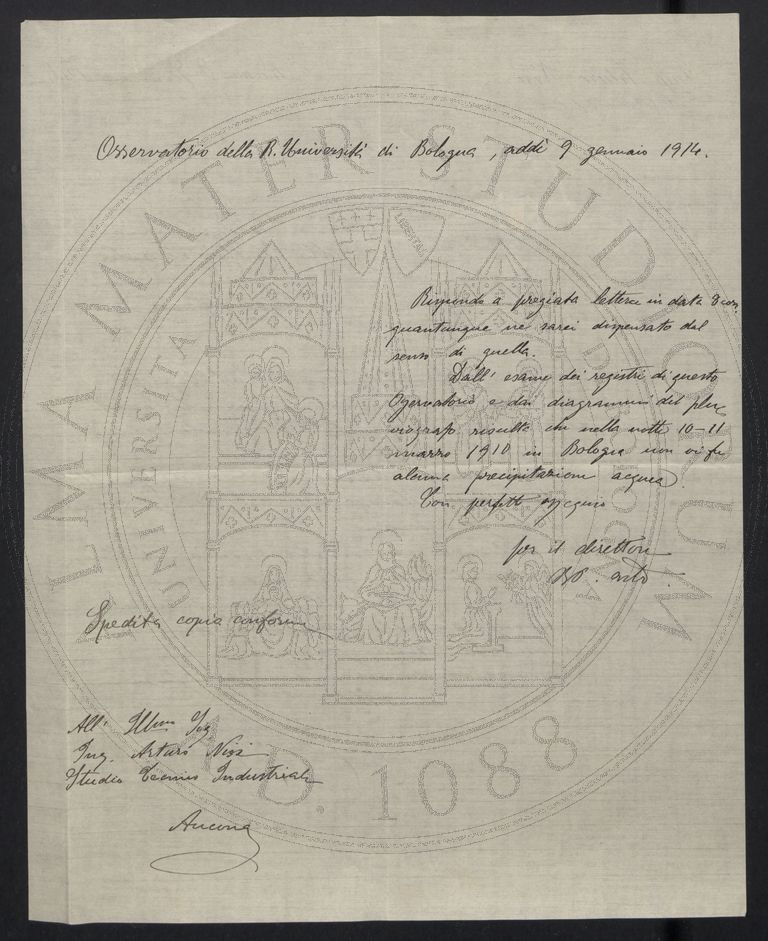 Osservatorio della R. Università di Bologna, addì 9 gennaio 1914.
Rispondo a pregiata lettera in data 8 corr.
quantunque ne sarei dispensato dal
senso di quella.
Dall' esame dei registri di questo
Osservatorio e dai diagrammi del plu-
viografo risulta che nella notte 10-11
marzo 1910 in Bologna non vi fu
alcuna precipitazione acquea.
Con perfetto ossequio
per il direttore
Spedita copia conforme
All' Illmo Sig
Ing. Arturo
Studio Tecnico Industriale
Ancona
ALMA MATER STUDIORUM
UNIVERSITÀ
LIBERTAS
A.D. 1088